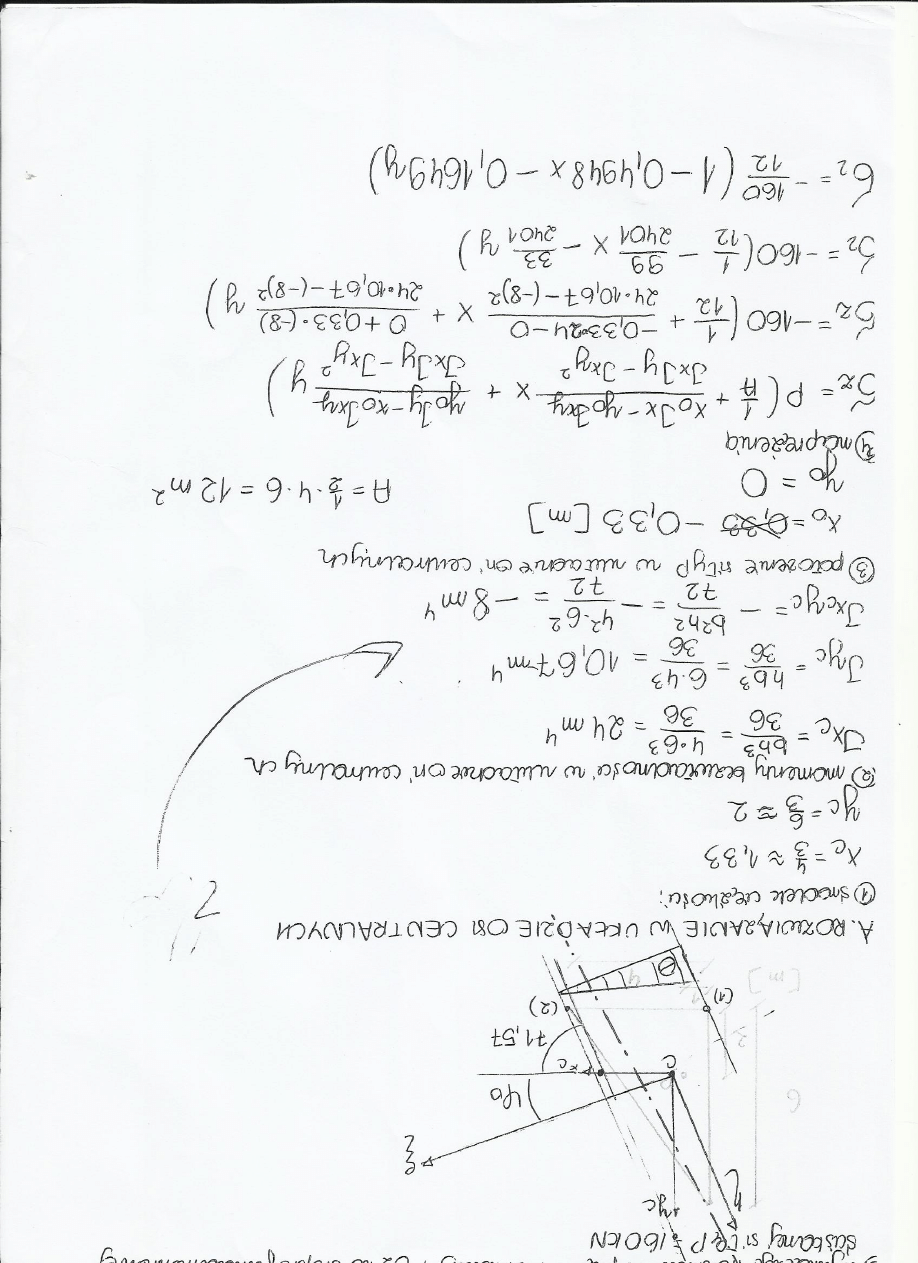 siłą P=160kN
yc
η
ξ
6
φ0
C
xc
71,57
(1)
(2)
[m]
4
A. ROZWIĄZANIE W UKŁADZIE OSI CENTRALNYCH
① środek ciężkości:
xc = 4/3 ≈ 1,33
yc = 6/3 ≈ 2
?
② momenty bezwładności w układzie osi centralnych
Jxc = bh³/36 = 4·6³/36 = 24 m⁴
Jyc = hb³/36 = 6·4³/36 = 10,67 m⁴
Jxcyc = - b²h²/72 = - 4²·6²/72 = -8 m⁴
③ położenie siły P w układzie osi centralnych
x₀ = -0,33 [m]
y₀ = 0
A = 1/2·4·6 = 12 m²
④ naprężenia
σz = P (1/A + (x₀Jx - y₀Jxy)/(JxJy - Jxy²) x + (y₀Jy - x₀Jxy)/(JxJy - Jxy²) y)
σz = -160 (1/12 + (-0,33·24-0)/(24·10,67-(-8)²) x + (0+0,33·(-8))/(24·10,67-(-8)²) y)
σz = -160 (1/12 - 99/2401 x - 33/2401 y)
σz = - 160/12 (1 - 0,4948 x - 0,1649 y)